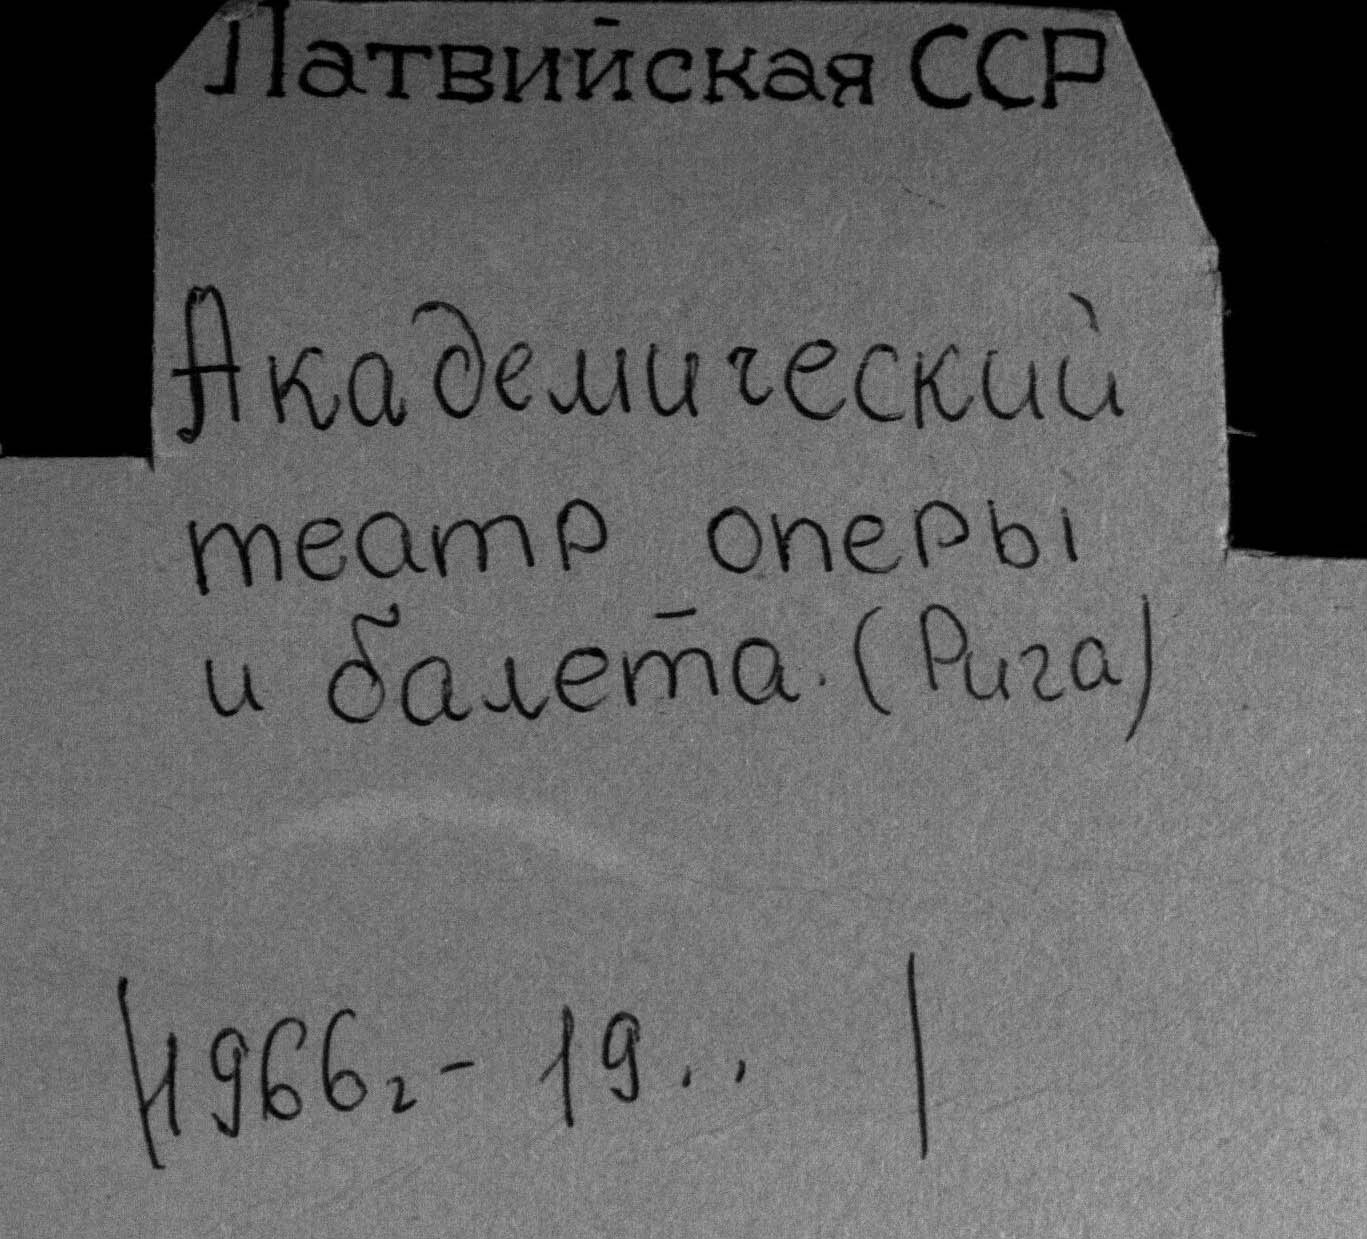 Латвийская ССР
Академический
театр оперы
и балета. (Рига)
|1966г- 19.. |